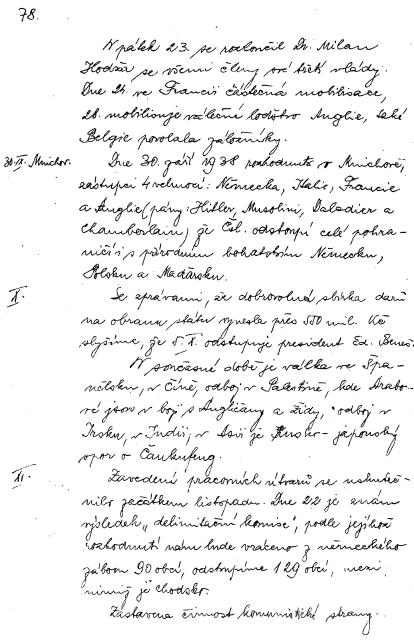 78.
V pátek 23. se rozloučil Dr. Milan
Hodža se všemi členy své třetí vlády.
Dne 24. ve Francii částečná mobilisace,
28. mobilisuje válečné loďstvo Anglie, také
Belgie povolala záložníky.
30.IX. Mnichov. Dne 30. září 1938 rozhodnuto v Mnichově,
zástupci 4 velmocí: Německa, Italie, Francie
a Anglie (pány: Hitler, Musolini, Daladier a
Chamberlain) že Čsl. odstoupí celé pohra-
ničí i s přírodním bohatstvím Německu,
Polsku a Maďarsku.
X. Se zprávami, že dobrovolná sbírka darů
na obranu státu vynesla přes 550 mil. Kč
slyšíme, že 5.X. odstupuje president Ed. Beneš.
V současné době je válka ve Špa-
nělsku, v Číně, odboj v Palestině, kde Arabo-
vé jsou v boji s Angličany a židy, odboj v
Iraku, v Indii, v Asii je Rusko-japonský
spor o Čankufeng.
XI. Zavedení pracovních útvarů se uskuteč-
nilo začátkem listopadu. Dne 22 je znám
výsledek „delimitační komise", podle jejíhož
rozhodnutí nám bude vráceno z německého
záboru 90 obcí, odstupíme 129 obcí, mezi
nimiž je Chodsko.
Zastavena činnost komunistické strany.